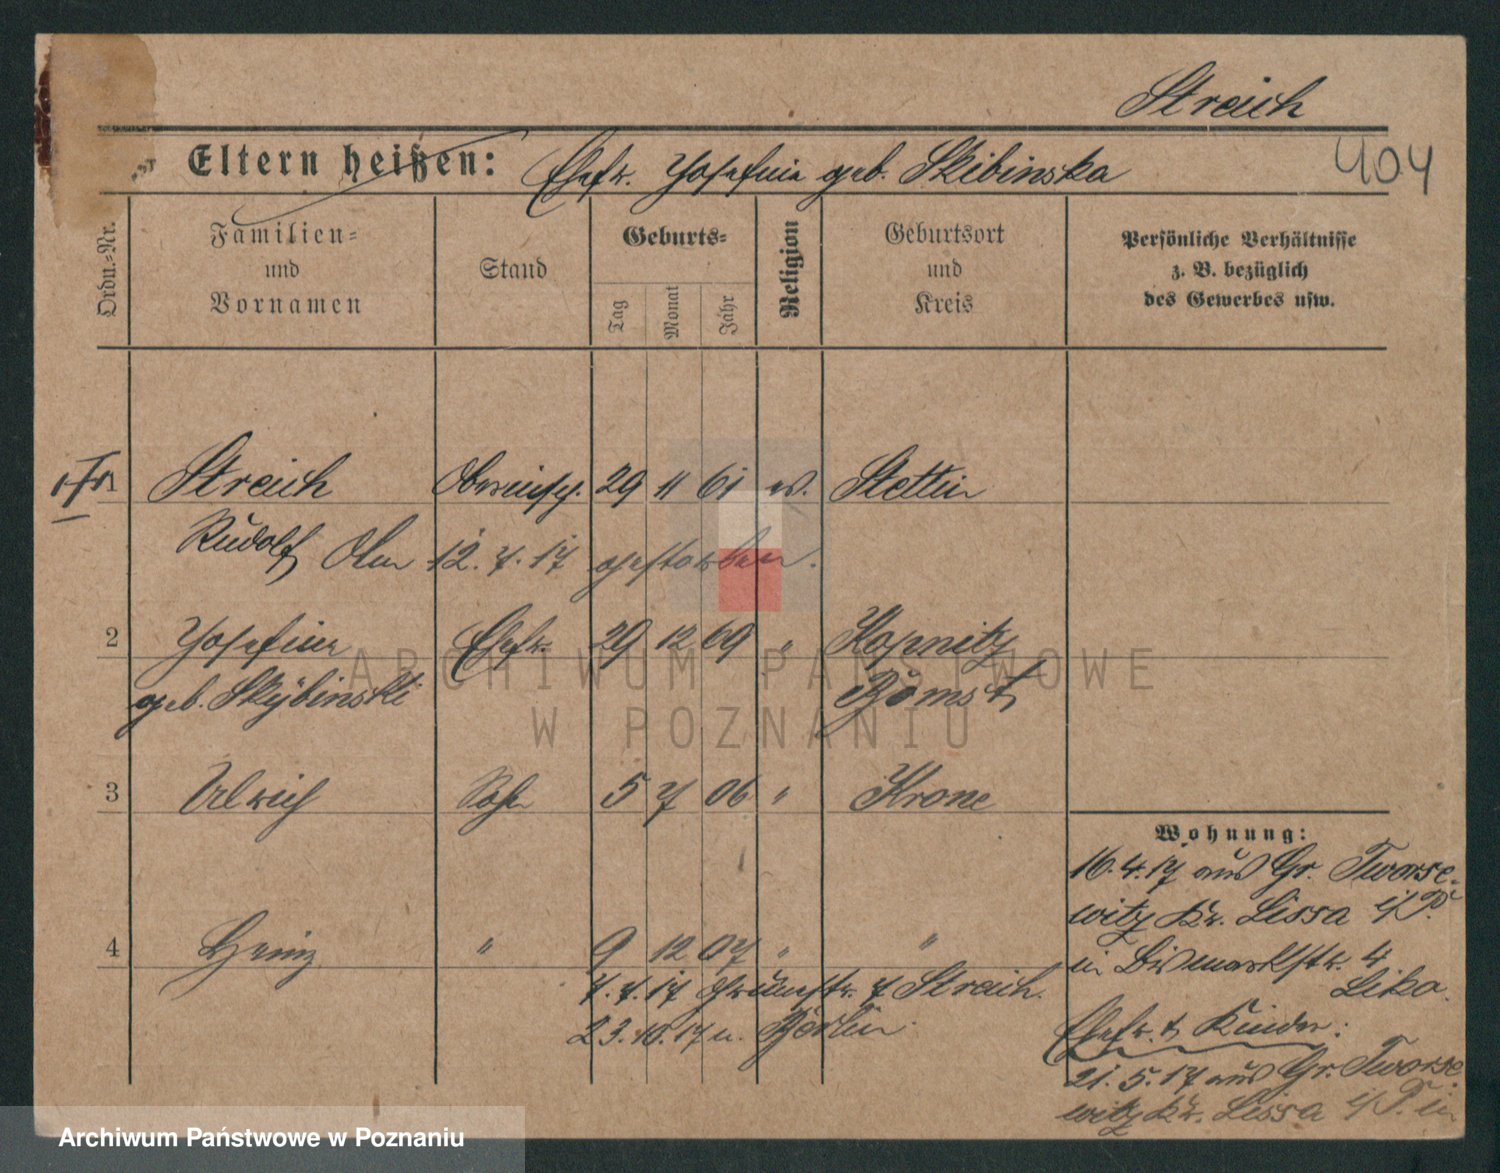 Streich
Eltern heißen: Ehefr. Josefine geb. Skibinska
404
Ordn.-Nr.
Familien-
und
Vornamen
Stand
Geburts-
Tag
Monat
Jahr
Religion
Geburtsort
und
Kreis
Persönliche Verhältnisse
z. B. bezüglich
des Gewerbes usw.
1 Streich 29 11 61 ev. Stettin
Rudolf Am 12. 7. 17 gestorben.
2 Josefine Ehefr. 29 12 69 " Kopnitz
geb. Skibinski Bomst
3 Ulrich Sohn 5 7 06 " Krone
4 Heinz " 9 12 07 " "
7. 7. 17 Streich.
23. 10. 17 n. Berlin.
Wohnung:
16. 4. 17 aus Gr. Tworse-
witz Kr. Lissa i/P.
in Bismarkstr. 4
Ehefr. u. Kinder:
21. 5. 17 aus Gr. Tworse
witz Kr. Lissa i/P. in
ARCHIWUM PAŃSTWOWE
W POZNANIU
Archiwum Państwowe w Poznaniu